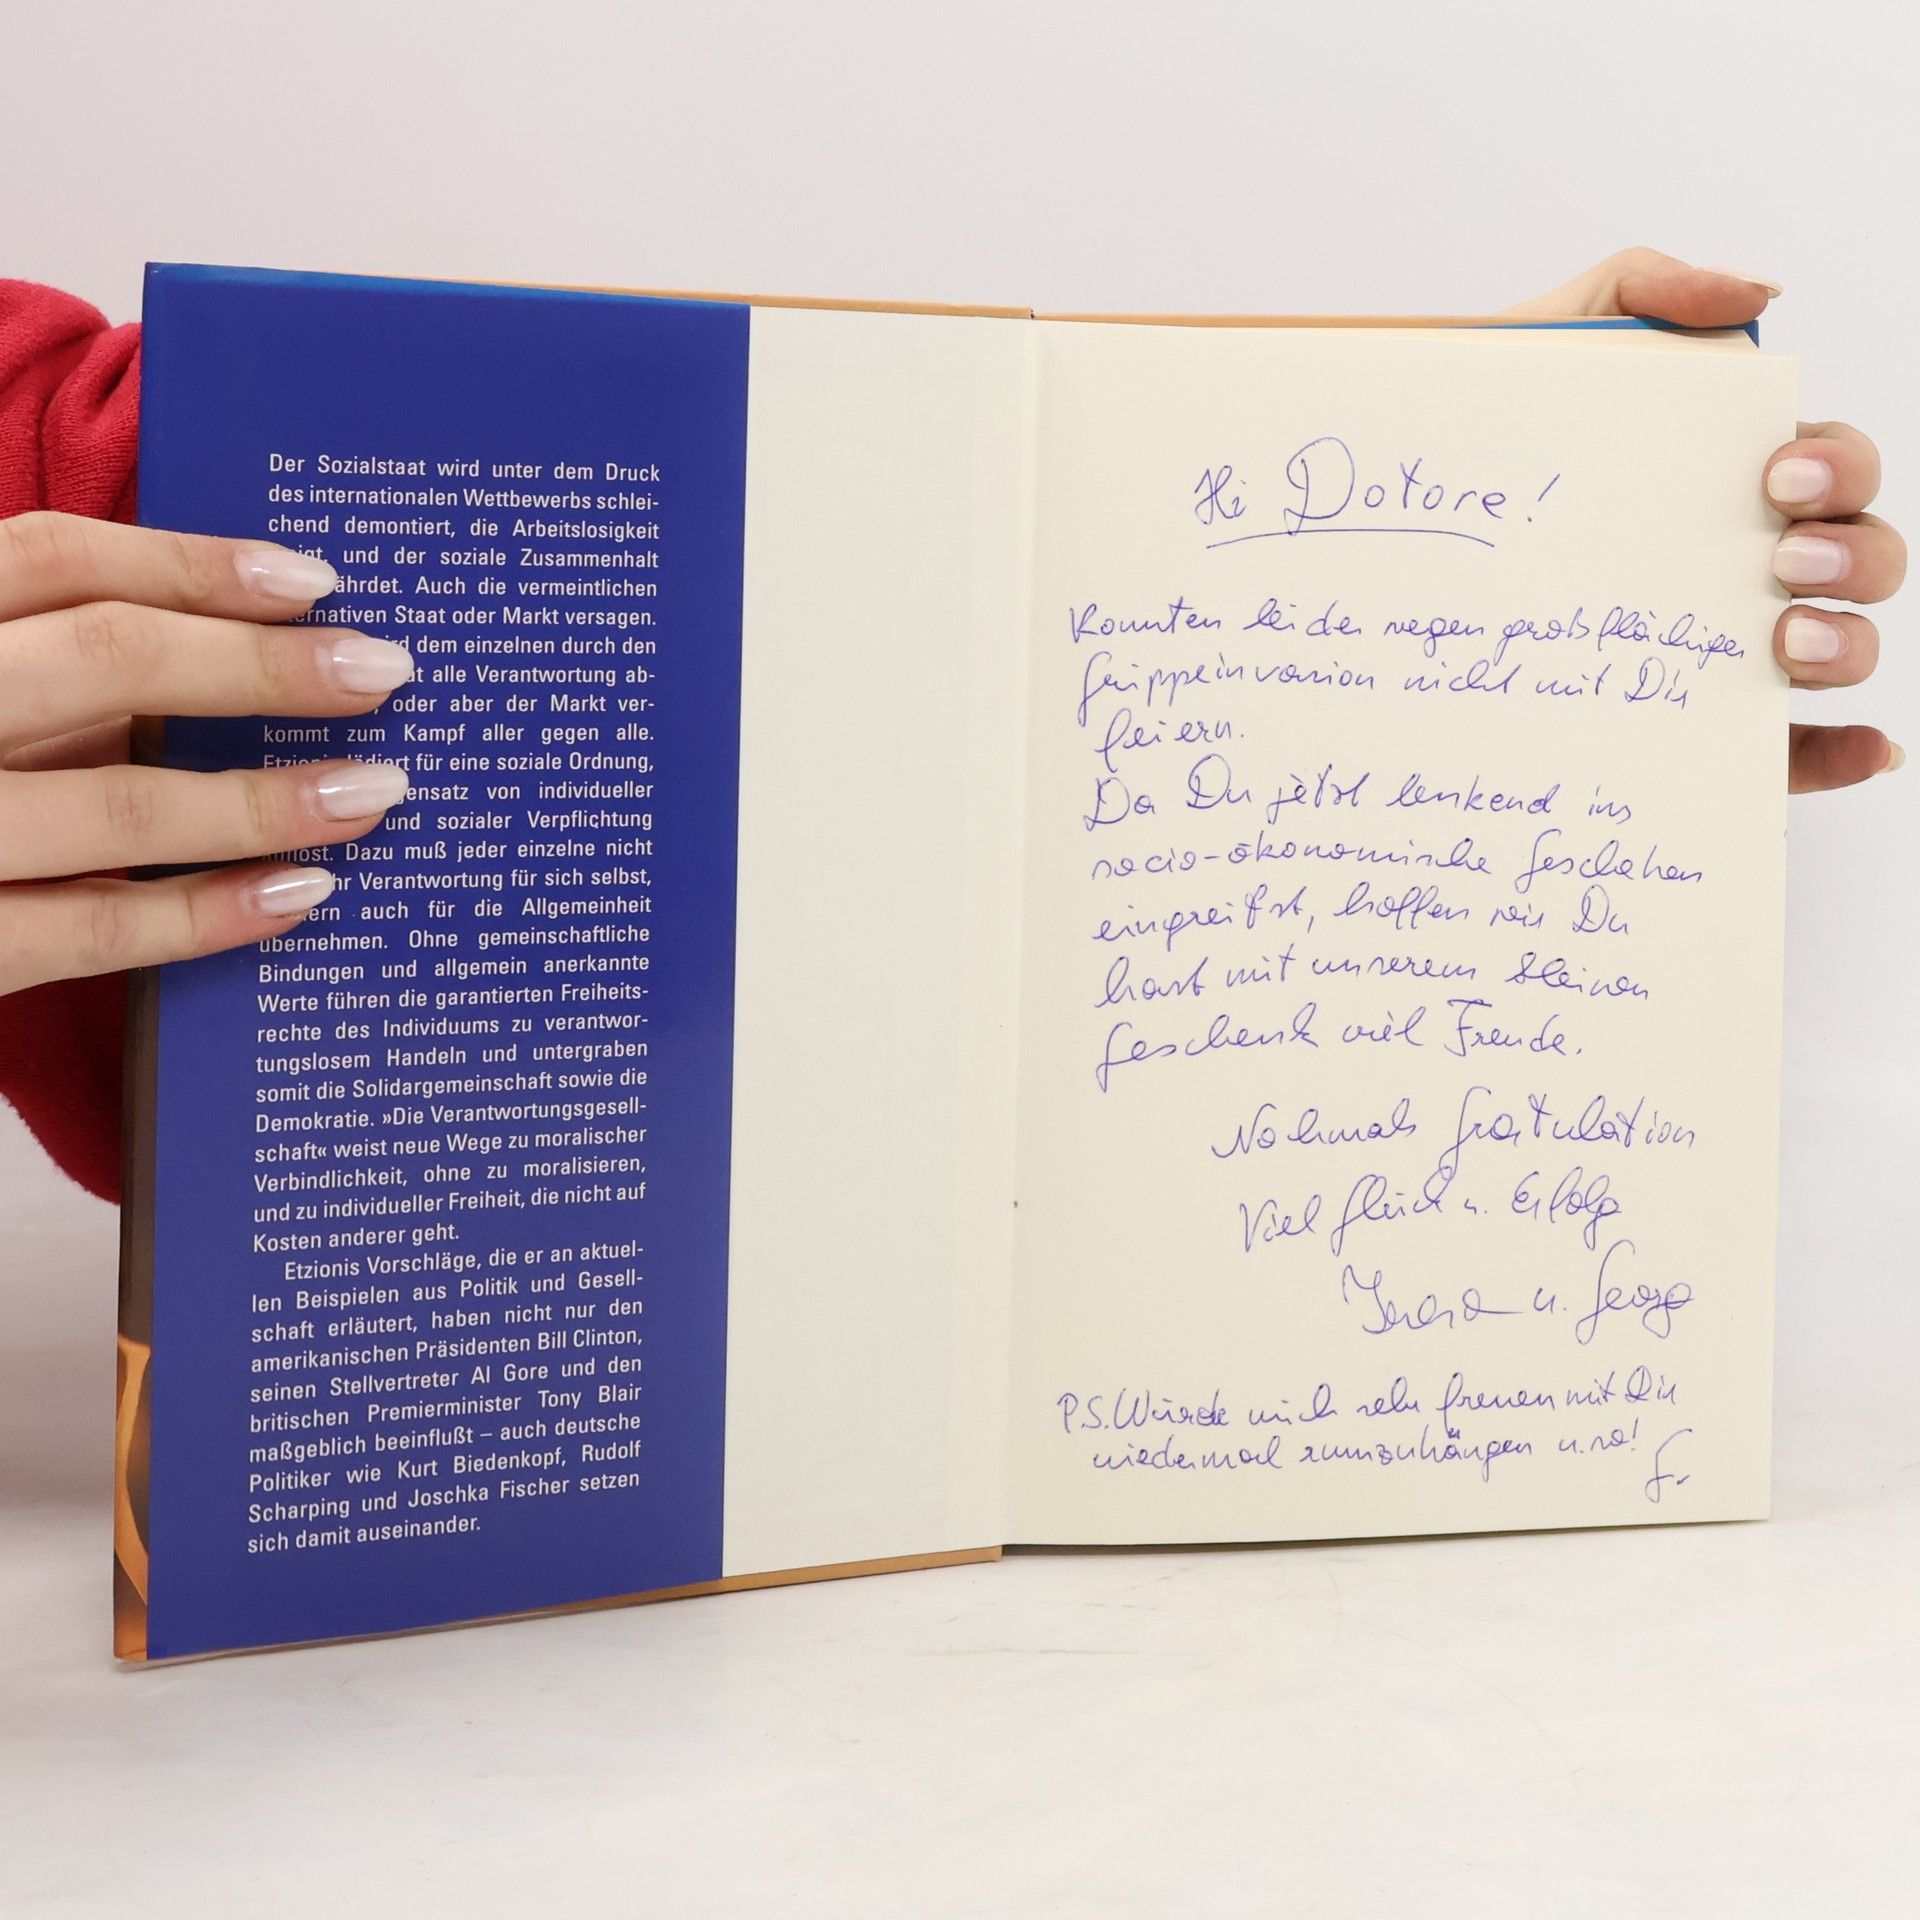 Der Sozialstaat wird unter dem Druck
des internationalen Wettbewerbs schlei-
chend demontiert, die Arbeitslosigkeit
und der soziale Zusammenhalt
ährdet. Auch die vermeintlichen
ernativen Staat oder Markt versagen.
dem einzelnen durch den
alle Verantwortung ab-
, oder aber der Markt ver-
kommt zum Kampf aller gegen alle.
für eine soziale Ordnung,
ensatz von individueller
und sozialer Verpflichtung
Dazu muß jeder einzelne nicht
hr Verantwortung für sich selbst,
ern auch für die Allgemeinheit
übernehmen. Ohne gemeinschaftliche
Bindungen und allgemein anerkannte
Werte führen die garantierten Freiheits-
rechte des Individuums zu verantwor-
tungslosem Handeln und untergraben
somit die Solidargemeinschaft sowie die
Demokratie. »Die Verantwortungsgesell-
schaft« weist neue Wege zu moralischer
Verbindlichkeit, ohne zu moralisieren,
und zu individueller Freiheit, die nicht auf
Kosten anderer geht.
Etzionis Vorschläge, die er an aktuel-
len Beispielen aus Politik und Gesell-
schaft erläutert, haben nicht nur den
amerikanischen Präsidenten Bill Clinton,
seinen Stellvertreter Al Gore und den
britischen Premierminister Tony Blair
maßgeblich beeinflußt – auch deutsche
Politiker wie Kurt Biedenkopf, Rudolf
Scharping und Joschka Fischer setzen
sich damit auseinander.
Hi Dotore!
Konnten leider wegen großflächiger
Grippeinvasion nicht mit Dir
feiern.
Da Du jetzt lenkend ins
socio-ökonomische Geschehen
eingreifst, hoffen wir Du
hast mit unserem kleinen
Geschenk viel Freude.
Nochmals Gratulation
Viel Glück u. Erfolg
u. Georg
P.S. Würde mich sehr freuen mit Dir
wiedermal rumzuhängen u.so!
G.